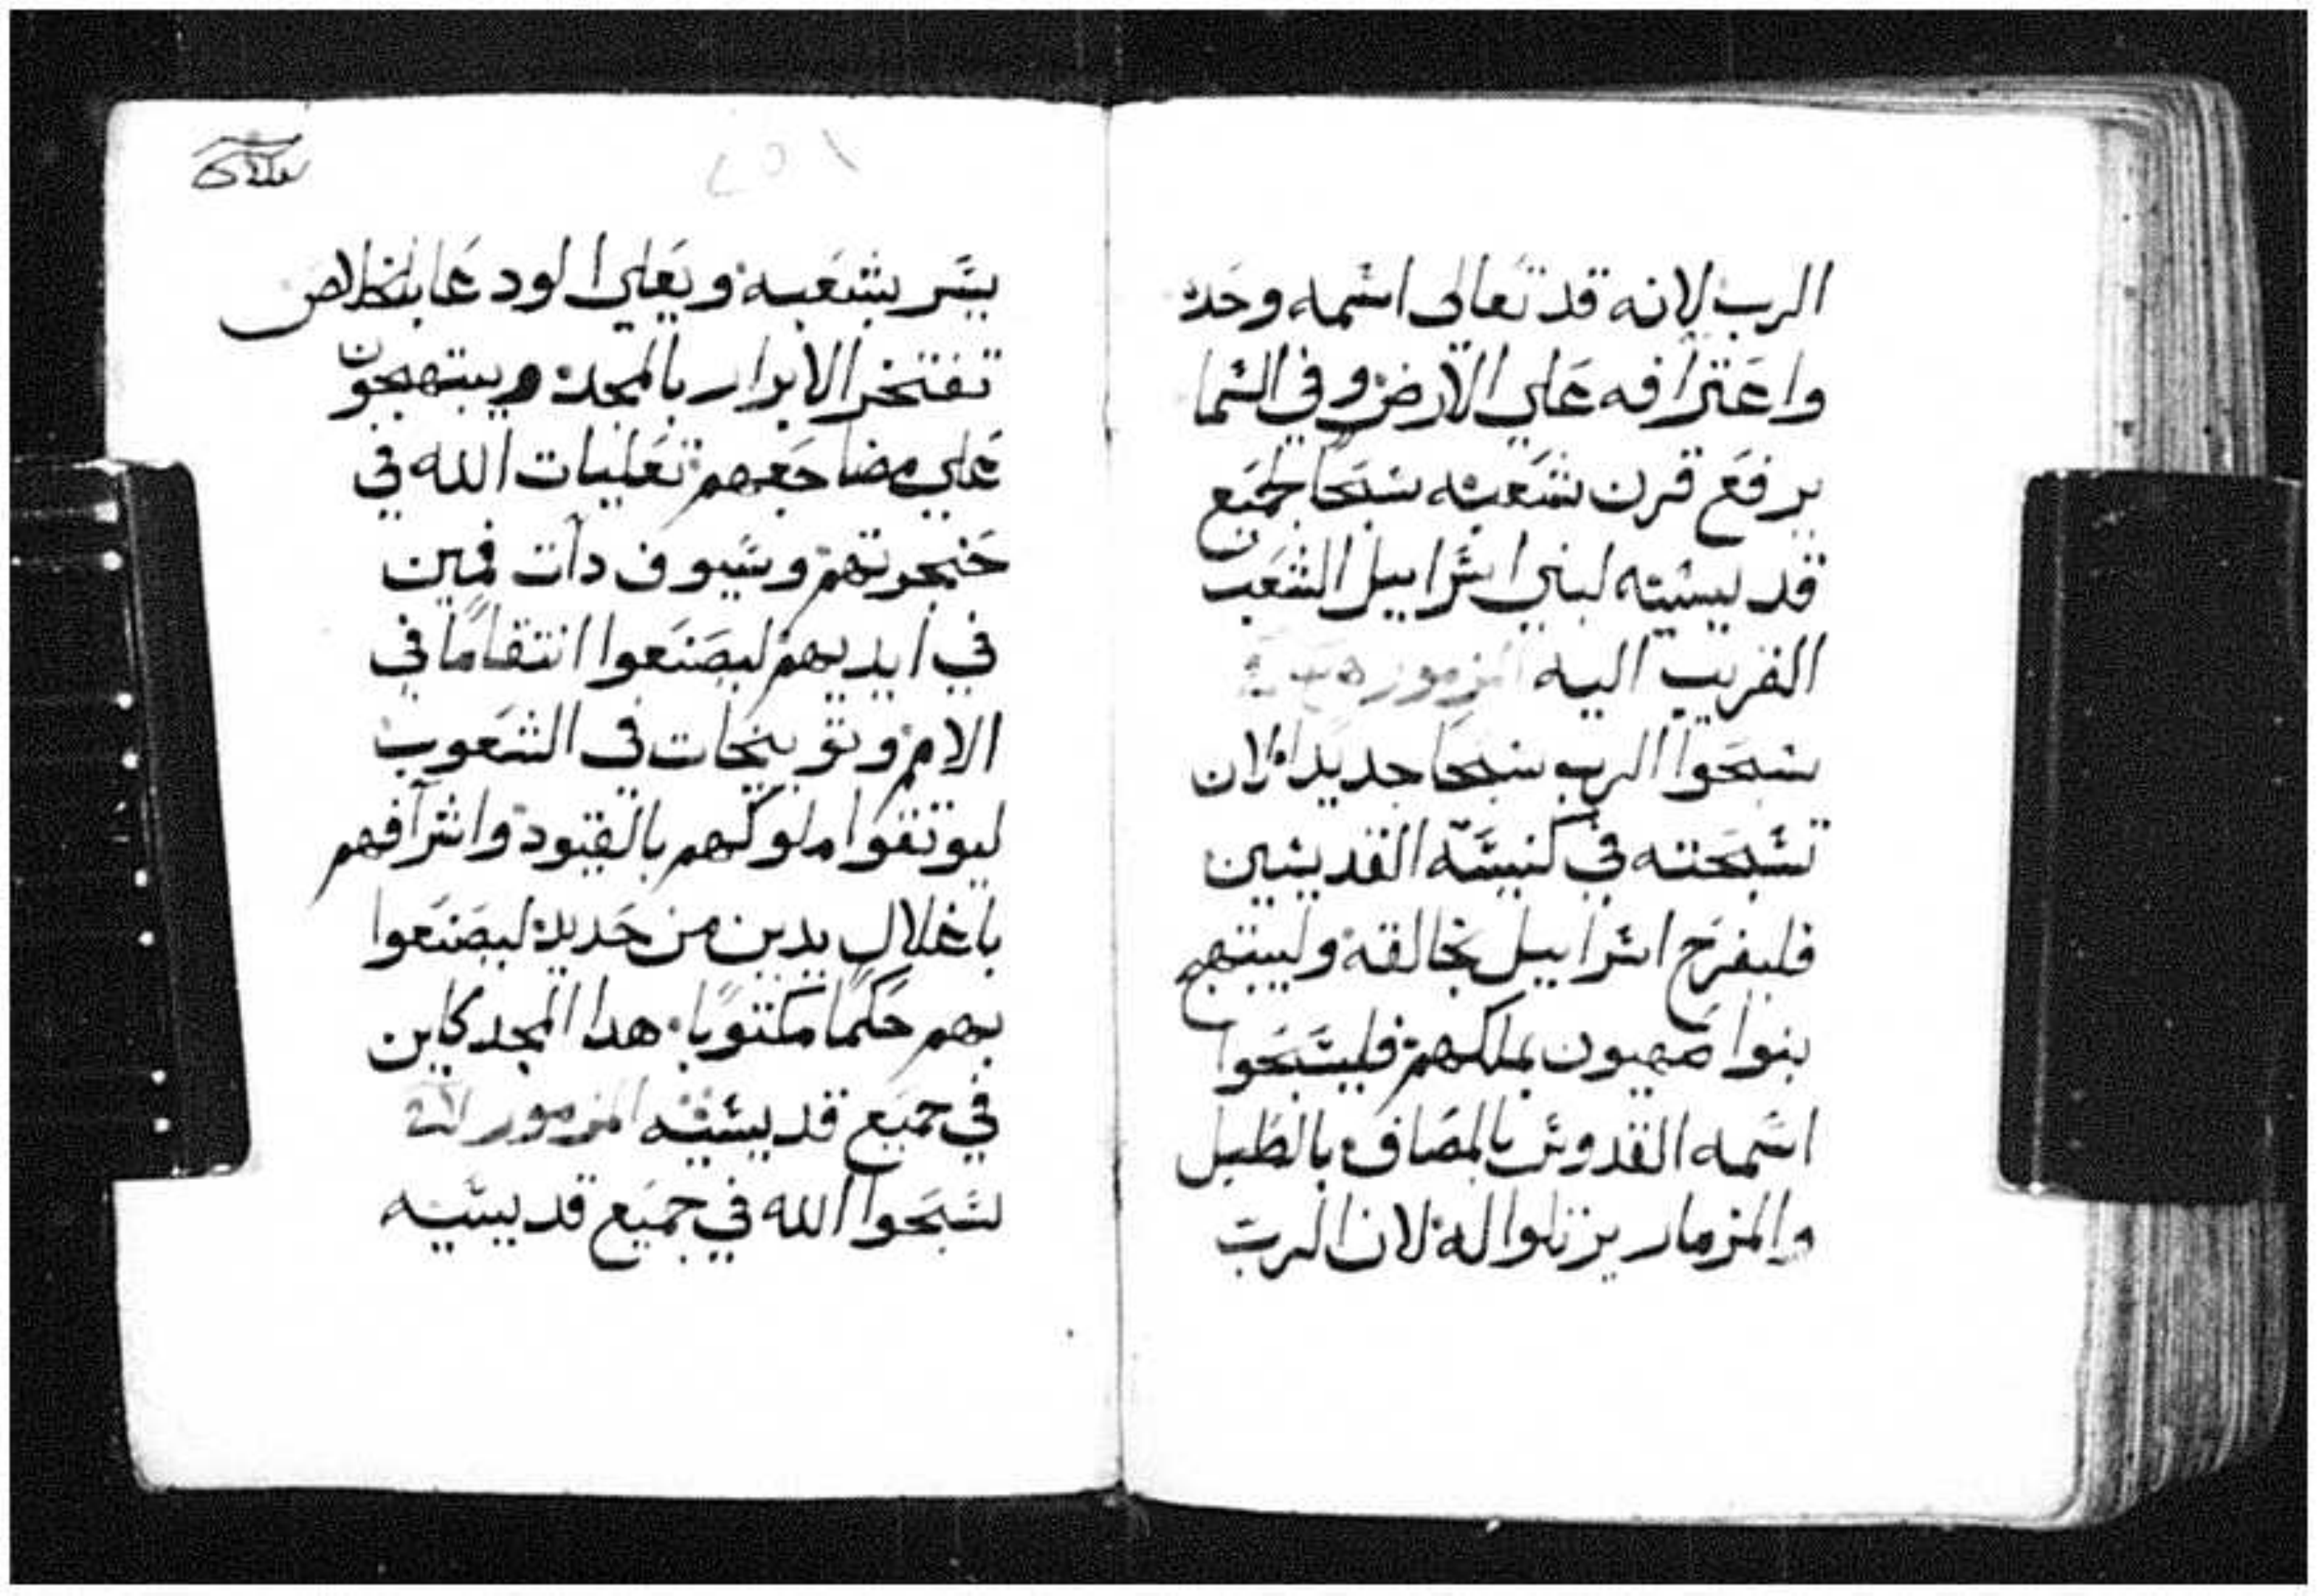 الرب لانه قد تعالى اسمه وحده
واعترافه علي الارض وفي السما
يرفع قرن شعبه سبحا لجميع
قديسيه لبني اسراييل الشعب
القريب اليه المزمور
سبحوا الرب سبحا جديدا لان
تسبحته في كنيسة القديسين
فليفرح اسراييل بخالقه وليبتهج
بنوا صهيون بملكهم فليسبحوا
اسمه القدوس بالمصاف بالطبل
والمزمار يرتلوا له لان الرب
١٥٦
يسر بشعبه ويعلي الودعا بالخلاص
تفتخر الابرار بالمجد ويبتهجون
علي مضاجعهم تعليات الله في
حنجرتهم وسيوف دات فمين
في ايديهم ليصنعوا انتقاما في
الامم وتوبيخات في الشعوب
ليوتقوا ملوكهم بالقيود واشرافهم
باغلال يدين من حديد ليصنعوا
بهم حكما مكتوبا هدا المجد كاين
في جميع قديسيه المزمور
سبحوا الله في جميع قديسيه